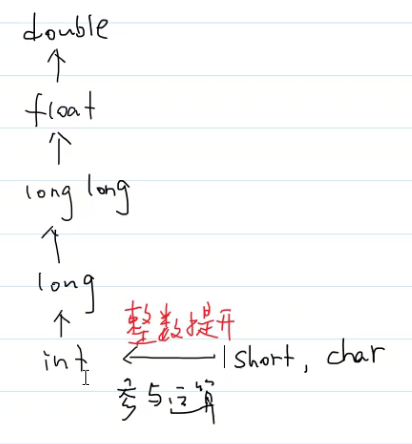 double
float
long long
long
整数提升
int short, char
参与运算